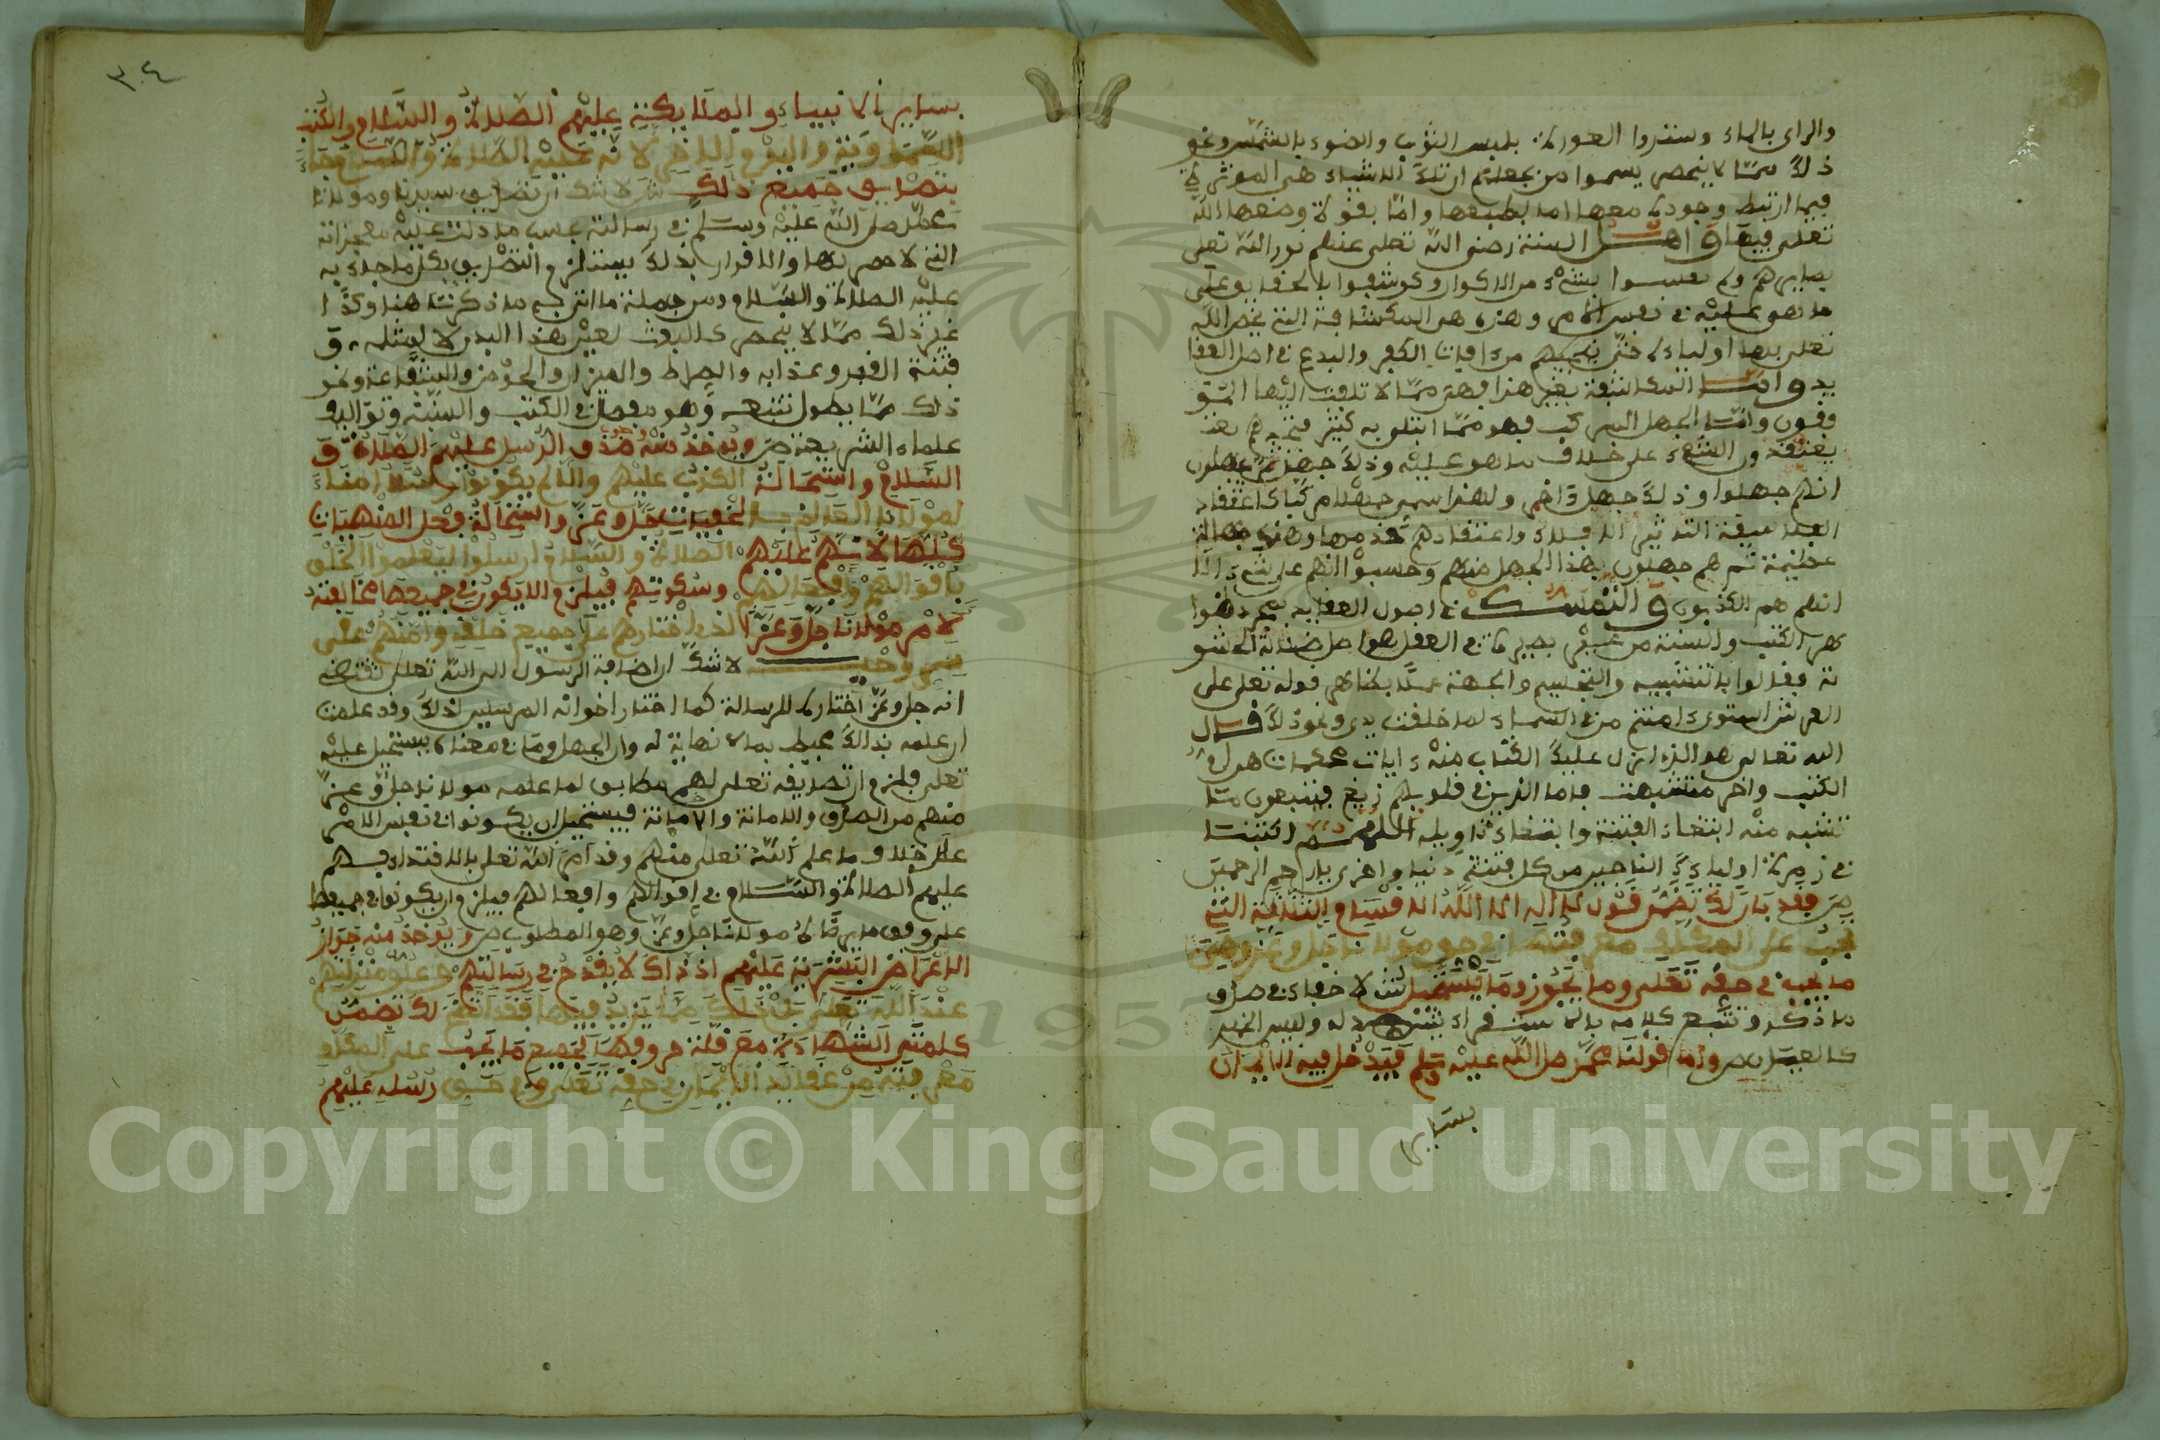 والرى بالماء وستروا العورة بلبس الثوب والضوء بالشمس ونحو
ذلك مما لا ينحصر يسموا من جهلهم ان تلك الاشياء هى الموثرة
فيما ارتبط وجوده معها اما بطبعها واما بقوة وضعها الله
تعلى فيها واهل السنة رضى الله تعلى عنهم نور الله تعلى
بصايرهم ولم بشىء من الاكوار وكوشفوا بالحقايق على
ما هو عليه فى نفس الامر وهذه هى المكاشفة التى يخص الله
تعلى بها اولياءه حتى ينجيهم من ءافات الكفر والبدع فى اصل العقا
يد واما المكاشفة بغير هذا فهى مما لا تلفت اليها المو
فقون واما الجهل المركب فهو مما ابتلى به كثير فتجدهم
يعتقدون الشىء على خلاف ما هو عليه وذلك جهل ثم يجهلون
انهم جهلوا وذلك جهل ءاخر ولهذا سمى جهلا مركبا كاعتقاد
الفلاسفة التاثير للافلاك واعتقادهم قدمها وهذه جهالة
عظيمة ثم هم جهلون بهذا الجهل منهم وحسبوا انهم على شىء الا
انهم هم الكذبون والتمسك فى اصول العقايد بمجرد ظوا
هر الكتب والسنة من غير بصيرة فى العقل هو اصل ضلالة الحشو
ية فقالوا بالتشبيه والتجسيم والجهة عملا بظاهر قوله تعلى على
العرش استوى ءامنتم من فى السماء لما خلقت بيدى ونحو ذلك قال
الله تعالى هو الذى انزل عليك الكتاب منه ءايات محكمات هن ام
الكتب واخر متشبهت فاما الذين فى قلوبهم زيغ فيتبعون ما
تشبه منه ابتغاء الفتنة وابتغاء تاويله اللهم اكتبنا
فى زمرة اولياءك الناجين من كل فتنة دنيا واخرى يا ارحم الرحمين
ص فقد بان لك تضمن قول لا اله الا الله للاقسام الثلثة التى
تجب على المكلف معرفتها فى حق مولانا جل وعز وهى
ما يجب فى حقه تعلى وما يجوز وما يستحيل ش لا خفاء فى صدق
ما ذكر وتتبع كلامه بالاستقراء يشهد له وليس الخبر
كالعيان ص واما قولنا محمد رسول الله صلى الله عليه وسلم فيدخل فيه الايمان
بساير
٣٠٤
بساير الانبياء والملايكة عليهم الصلاة والسلام والكتب
السماوية واليوم الاخر لانه عليه الصلاة والسلام جاء
بتصديق جميع ذلك ش لا شك ان تصديق سيدنا ومولانا
محمد صلى الله عليه وسلم فى رسالته بحسب ما دلت عليه معجزاته
التى لا حصر لها والاقرار بذلك يستلزم التصديق بكل ما جاء به
عليه الصلاة والسلام ومن جملة ما اتى به ما ذكرت هنا وكذا
غير ذلك مما لا ينحصر كالبعث لعين هذا البدن لا لمثله و
فتنة القبر وعذابه والصراط والميزان والحوض والشفاعة ونحو
ذلك مما يطول تتبعه وهو مفصل فى الكتب والسنة وتواليف
علماء الشريعة ص ويوخذ منه وجوب صدق الرسل عليهم الصلاة و
السلام واستحالة الكذب عليهم والا لم يكونوا رسلا امناء
لمولانا العالم بالخفيات جل وعز واستحالة فعل المنهيات
كلها لانهم عليهم الصلاة والسلام ارسلوا ليعلموا الخلق
باقوالهم وافعالهم وسكوتهم فيلزم الا يكون فى جميعها مخالفة
لامر مولانا جل وعز الذى اختارهم على جميع خلقه وامنهم على
سر وحيه لا شك ان اضافة الرسول الى الله تعلى تقتضى
انه جل وعز اختاره للرسالة كما اختار اخوانه المرسلين لذلك وقد علمت
ان علمه بذالك محيط بما لا نهاية له وان الجهل وما فى معناه يستحيل عليه
تعلى فلزم ان تصديقه تعلى لهم مطابق لما علمه مولانا جل وعز
منهم من الصدق والامانة فيستحيل ان يكونوا فى نفس الامر
على خلاف ما علم الله تعلى منهم وقد امر الله تعلى بالاقتداء بهم
عليهم الصلاة والسلام فى اقوالهم وافعالهم فيلزم ان يكونوا فى جميعها
على وفق ما يرضاه مولانا جل وعز وهو المطلوب ص ويوخذ منه جواز
الاعراض البشرية عليهم اذ ذاك لا يقدح فى رسالتهم وعلو منزلتهم
عند الله تعلى بل ذلك مما يزيد فيها فقد اتضح لك تضمن
كلمتى الشهادة مع قلة حروفها لجميع ما يجب على المكلف
معرفته من عقايد الايمان فى حقه تعلى وفى حق رسله عليهم
Copyright © King Saud University
1957